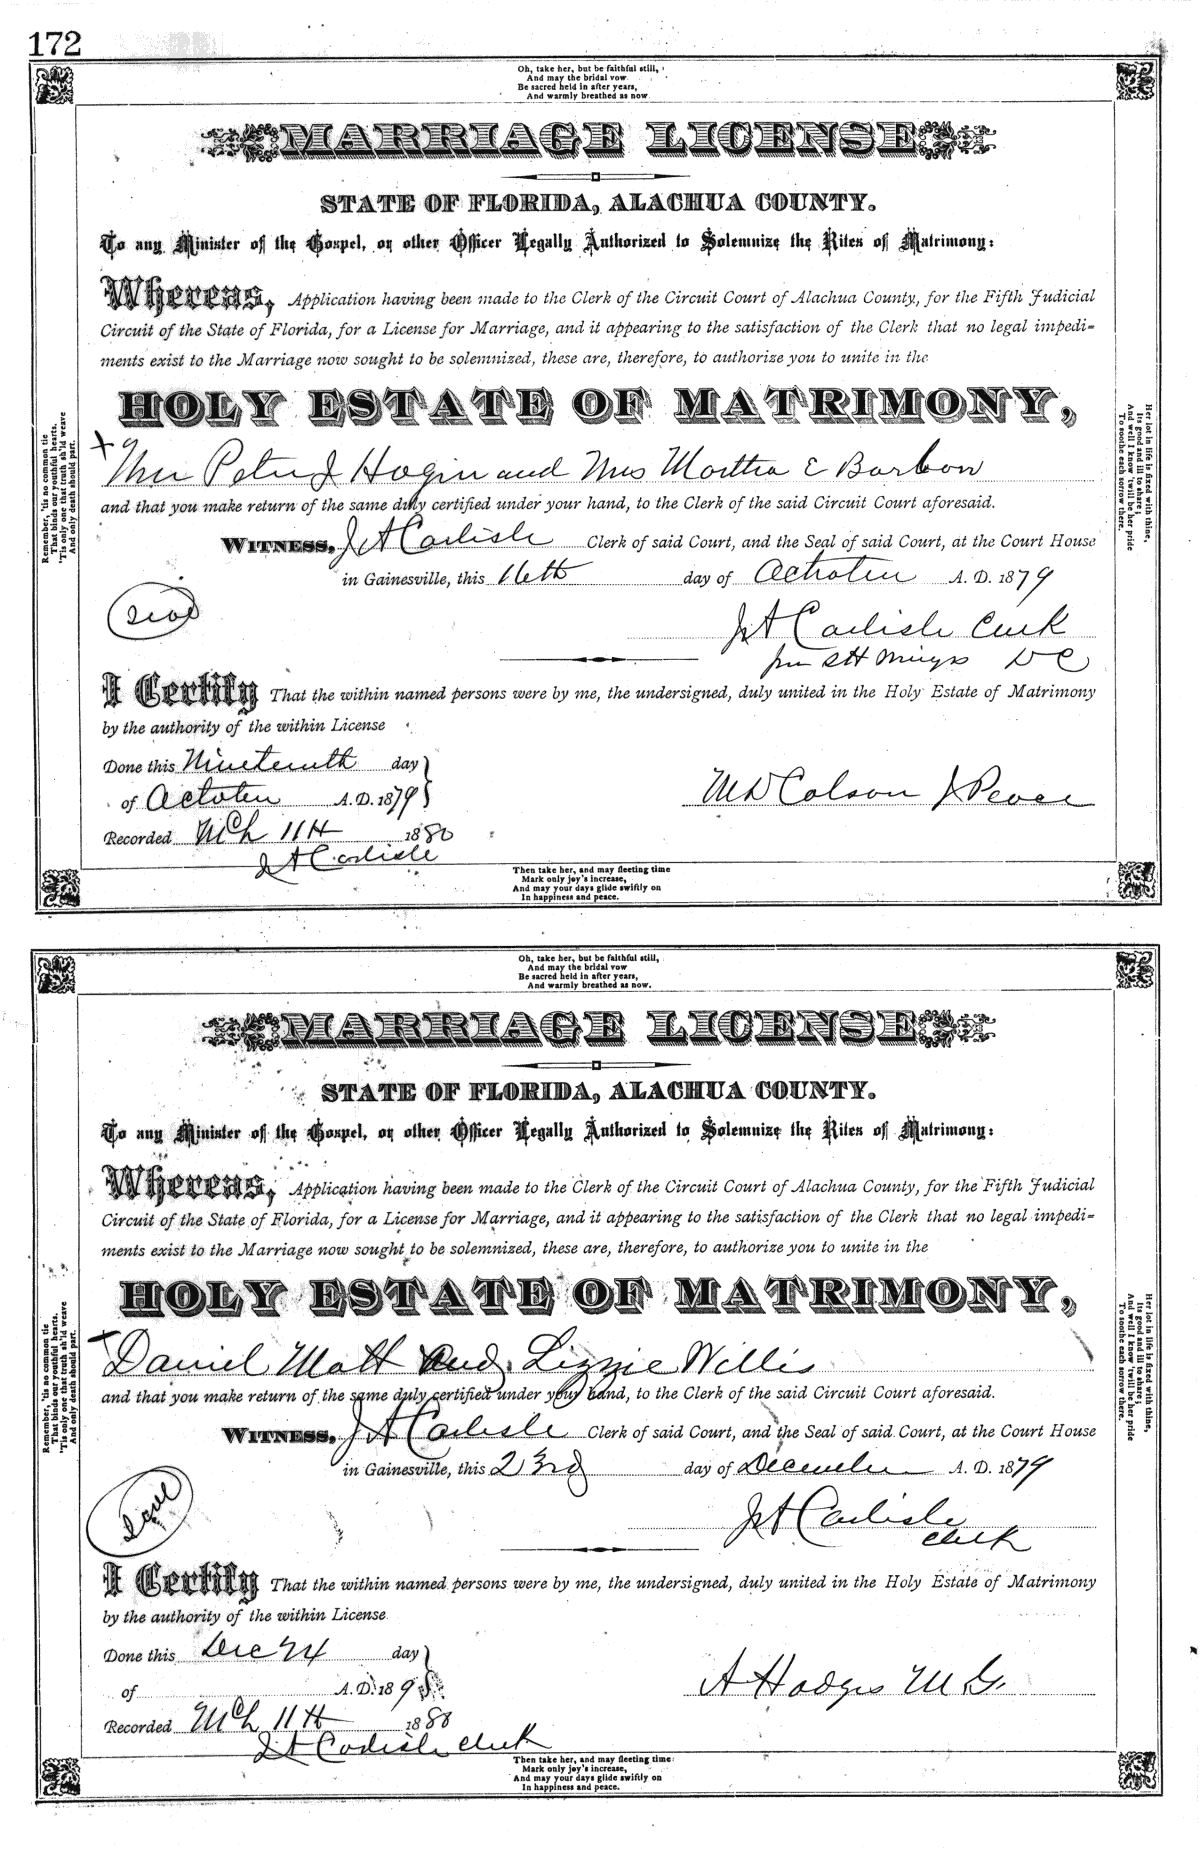 172
Oh, take her, but be faithful still,
And may the bridal vow
Be sacred held in after years,
And warmly breathed as now.
MARRIAGE LICENSE
STATE OF FLORIDA, ALACHUA COUNTY.
To any Minister of the Gospel, or other Officer Legally Authorized to Solemnize the Rites of Matrimony:
Whereas, Application having been made to the Clerk of the Circuit Court of Alachua County, for the Fifth Judicial
Circuit of the State of Florida, for a License for Marriage, and it appearing to the satisfaction of the Clerk that no legal impedi-
ments exist to the Marriage now sought to be solemnized, these are, therefore, to authorize you to unite in the
HOLY ESTATE OF MATRIMONY,
Mr Peter J Hogin and Mrs Martha E Barbon
and that you make return of the same duly certified under your hand, to the Clerk of the said Circuit Court aforesaid.
WITNESS, J A Carlisle Clerk of said Court, and the Seal of said Court, at the Court House
in Gainesville, this 16th day of October A. D. 1879
Seal
J A Carlisle Clerk
DC
I Certify That the within named persons were by me, the undersigned, duly united in the Holy Estate of Matrimony
by the authority of the within License
Done this Nineteenth day
of October A. D. 1879
M D Colson J Peace
Recorded Mch 11th 1880
J A Carlisle
Remember, 'tis no common tie
That binds our youthful hearts,
'Tis only one that truth sh'ld weave
And only death should part.
Her lot in life is fixed with thine,
Its good and ill to share;
And well I know 'twill be her pride
To soothe each sorrow there.
Then take her, and may fleeting time
Mark only joy's increase,
And may your days glide swiftly on
In happiness and peace.
Oh, take her, but be faithful still,
And may the bridal vow
Be sacred held in after years,
And warmly breathed as now.
MARRIAGE LICENSE
STATE OF FLORIDA, ALACHUA COUNTY.
To any Minister of the Gospel, or other Officer Legally Authorized to Solemnize the Rites of Matrimony:
Whereas, Application having been made to the Clerk of the Circuit Court of Alachua County, for the Fifth Judicial
Circuit of the State of Florida, for a License for Marriage, and it appearing to the satisfaction of the Clerk that no legal impedi-
ments exist to the Marriage now sought to be solemnized, these are, therefore, to authorize you to unite in the
HOLY ESTATE OF MATRIMONY,
Daniel Mott and Lizzie Willis
and that you make return of the same duly certified under your hand, to the Clerk of the said Circuit Court aforesaid.
WITNESS, J A Carlisle Clerk of said Court, and the Seal of said Court, at the Court House
in Gainesville, this 23rd day of December A. D. 1879
Seal
J A Carlisle
Clerk
I Certify That the within named persons were by me, the undersigned, duly united in the Holy Estate of Matrimony
by the authority of the within License
Done this Dec 24 day
of A. D. 189
A Hodges M G.
Recorded Mch 11th 1880
J A Carlisle Clerk
Remember, 'tis no common tie
That binds our youthful hearts,
'Tis only one that truth sh'ld weave
And only death should part.
Her lot in life is fixed with thine,
Its good and ill to share;
And well I know 'twill be her pride
To soothe each sorrow there.
Then take her, and may fleeting time
Mark only joy's increase,
And may your days glide swiftly on
In happiness and peace.